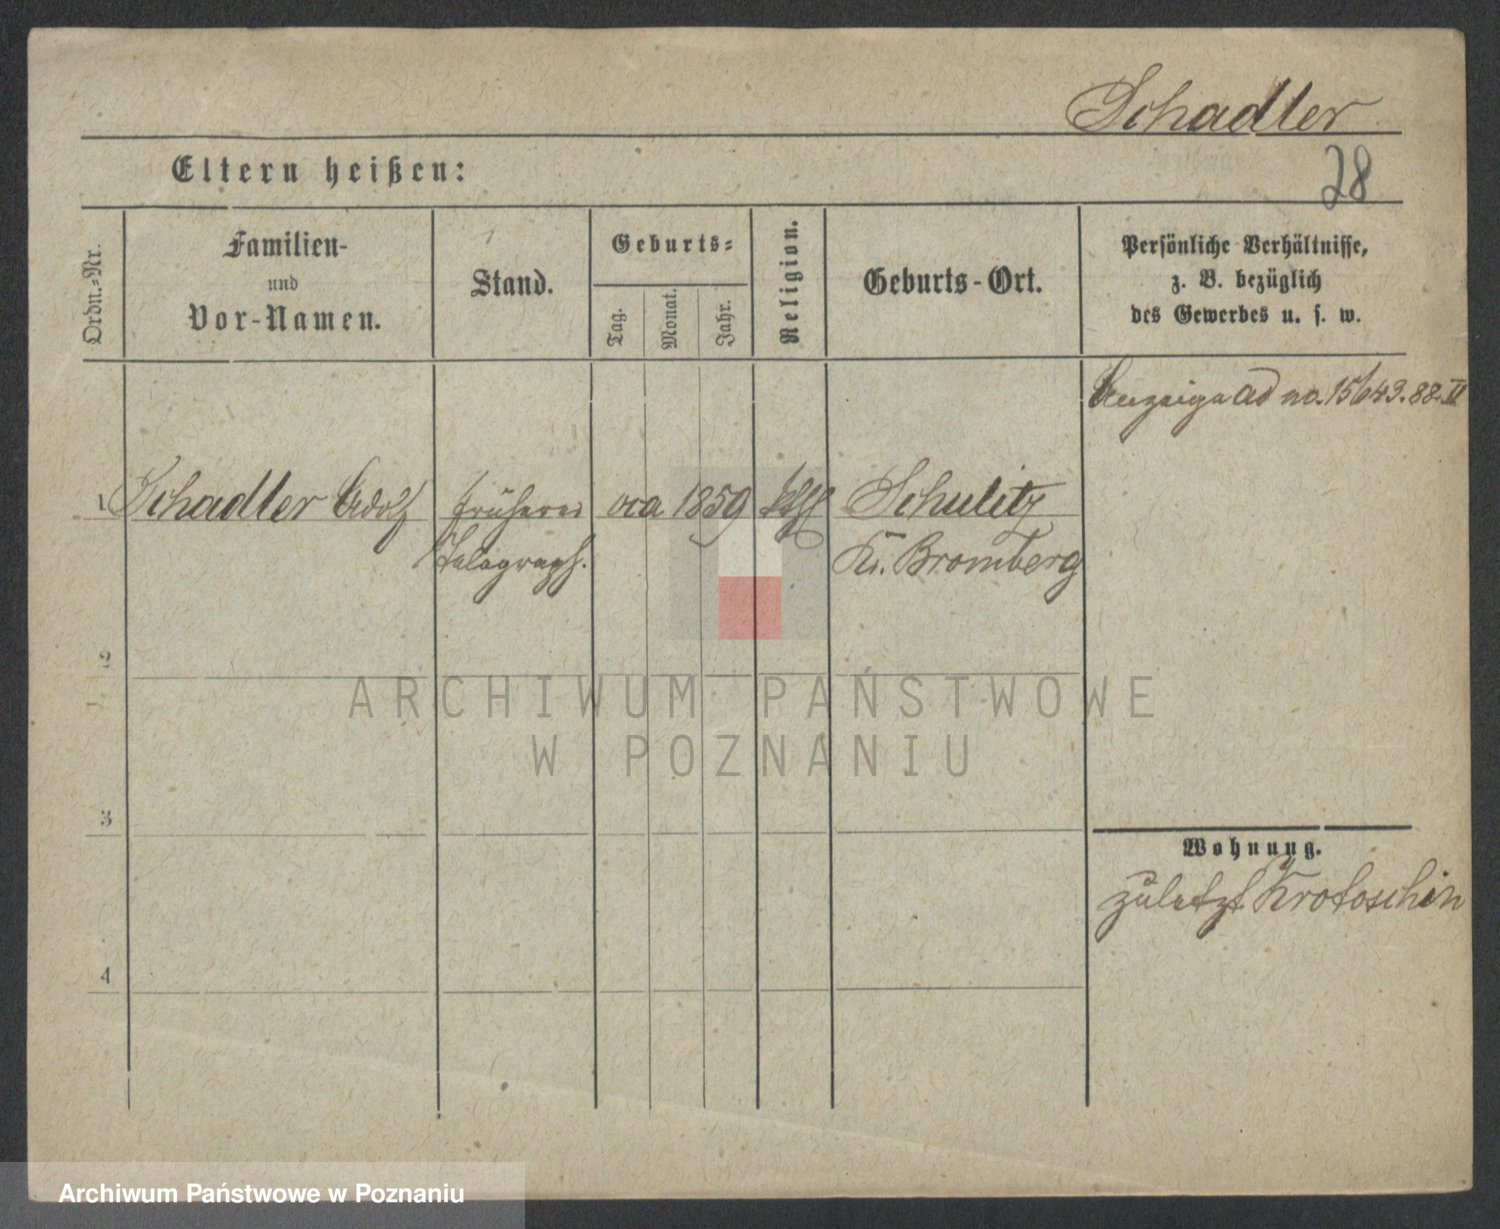 Schadler
Eltern heißen:
28
Ordn.-Nr.
Familien-
und
Vor-Namen.
Stand.
Geburts-
Tag.
Monat.
Jahr.
Religion.
Geburts-Ort.
Persönliche Verhältnisse,
z. B. bezüglich
des Gewerbes u. s. w.
Anzeige ad no. 15643.88.II
1 Schadler Adolf früherer cca 1859 kth Schulitz
Telegraph. Kr. Bromberg
2
3
4
Wohnung.
zuletzt Krotoschin
ARCHIWUM PAŃSTWOWE
W POZNANIU
Archiwum Państwowe w Poznaniu